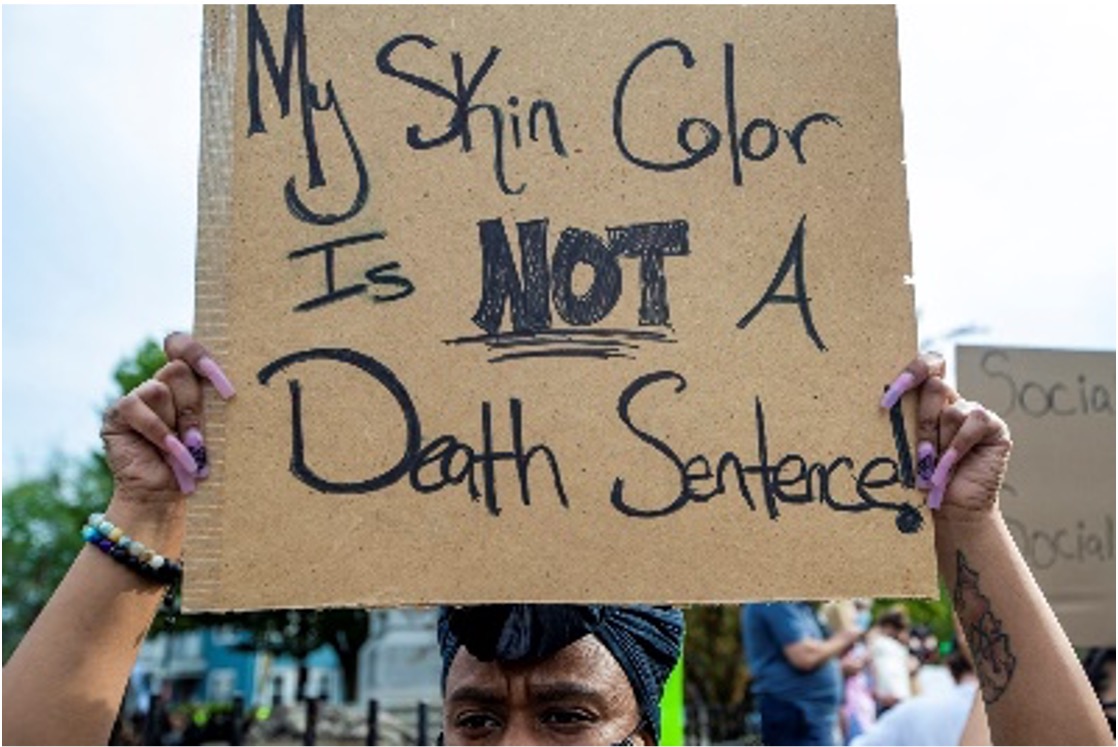 My Skin Color
Is NOT A
Death Sentence!
Social
Social